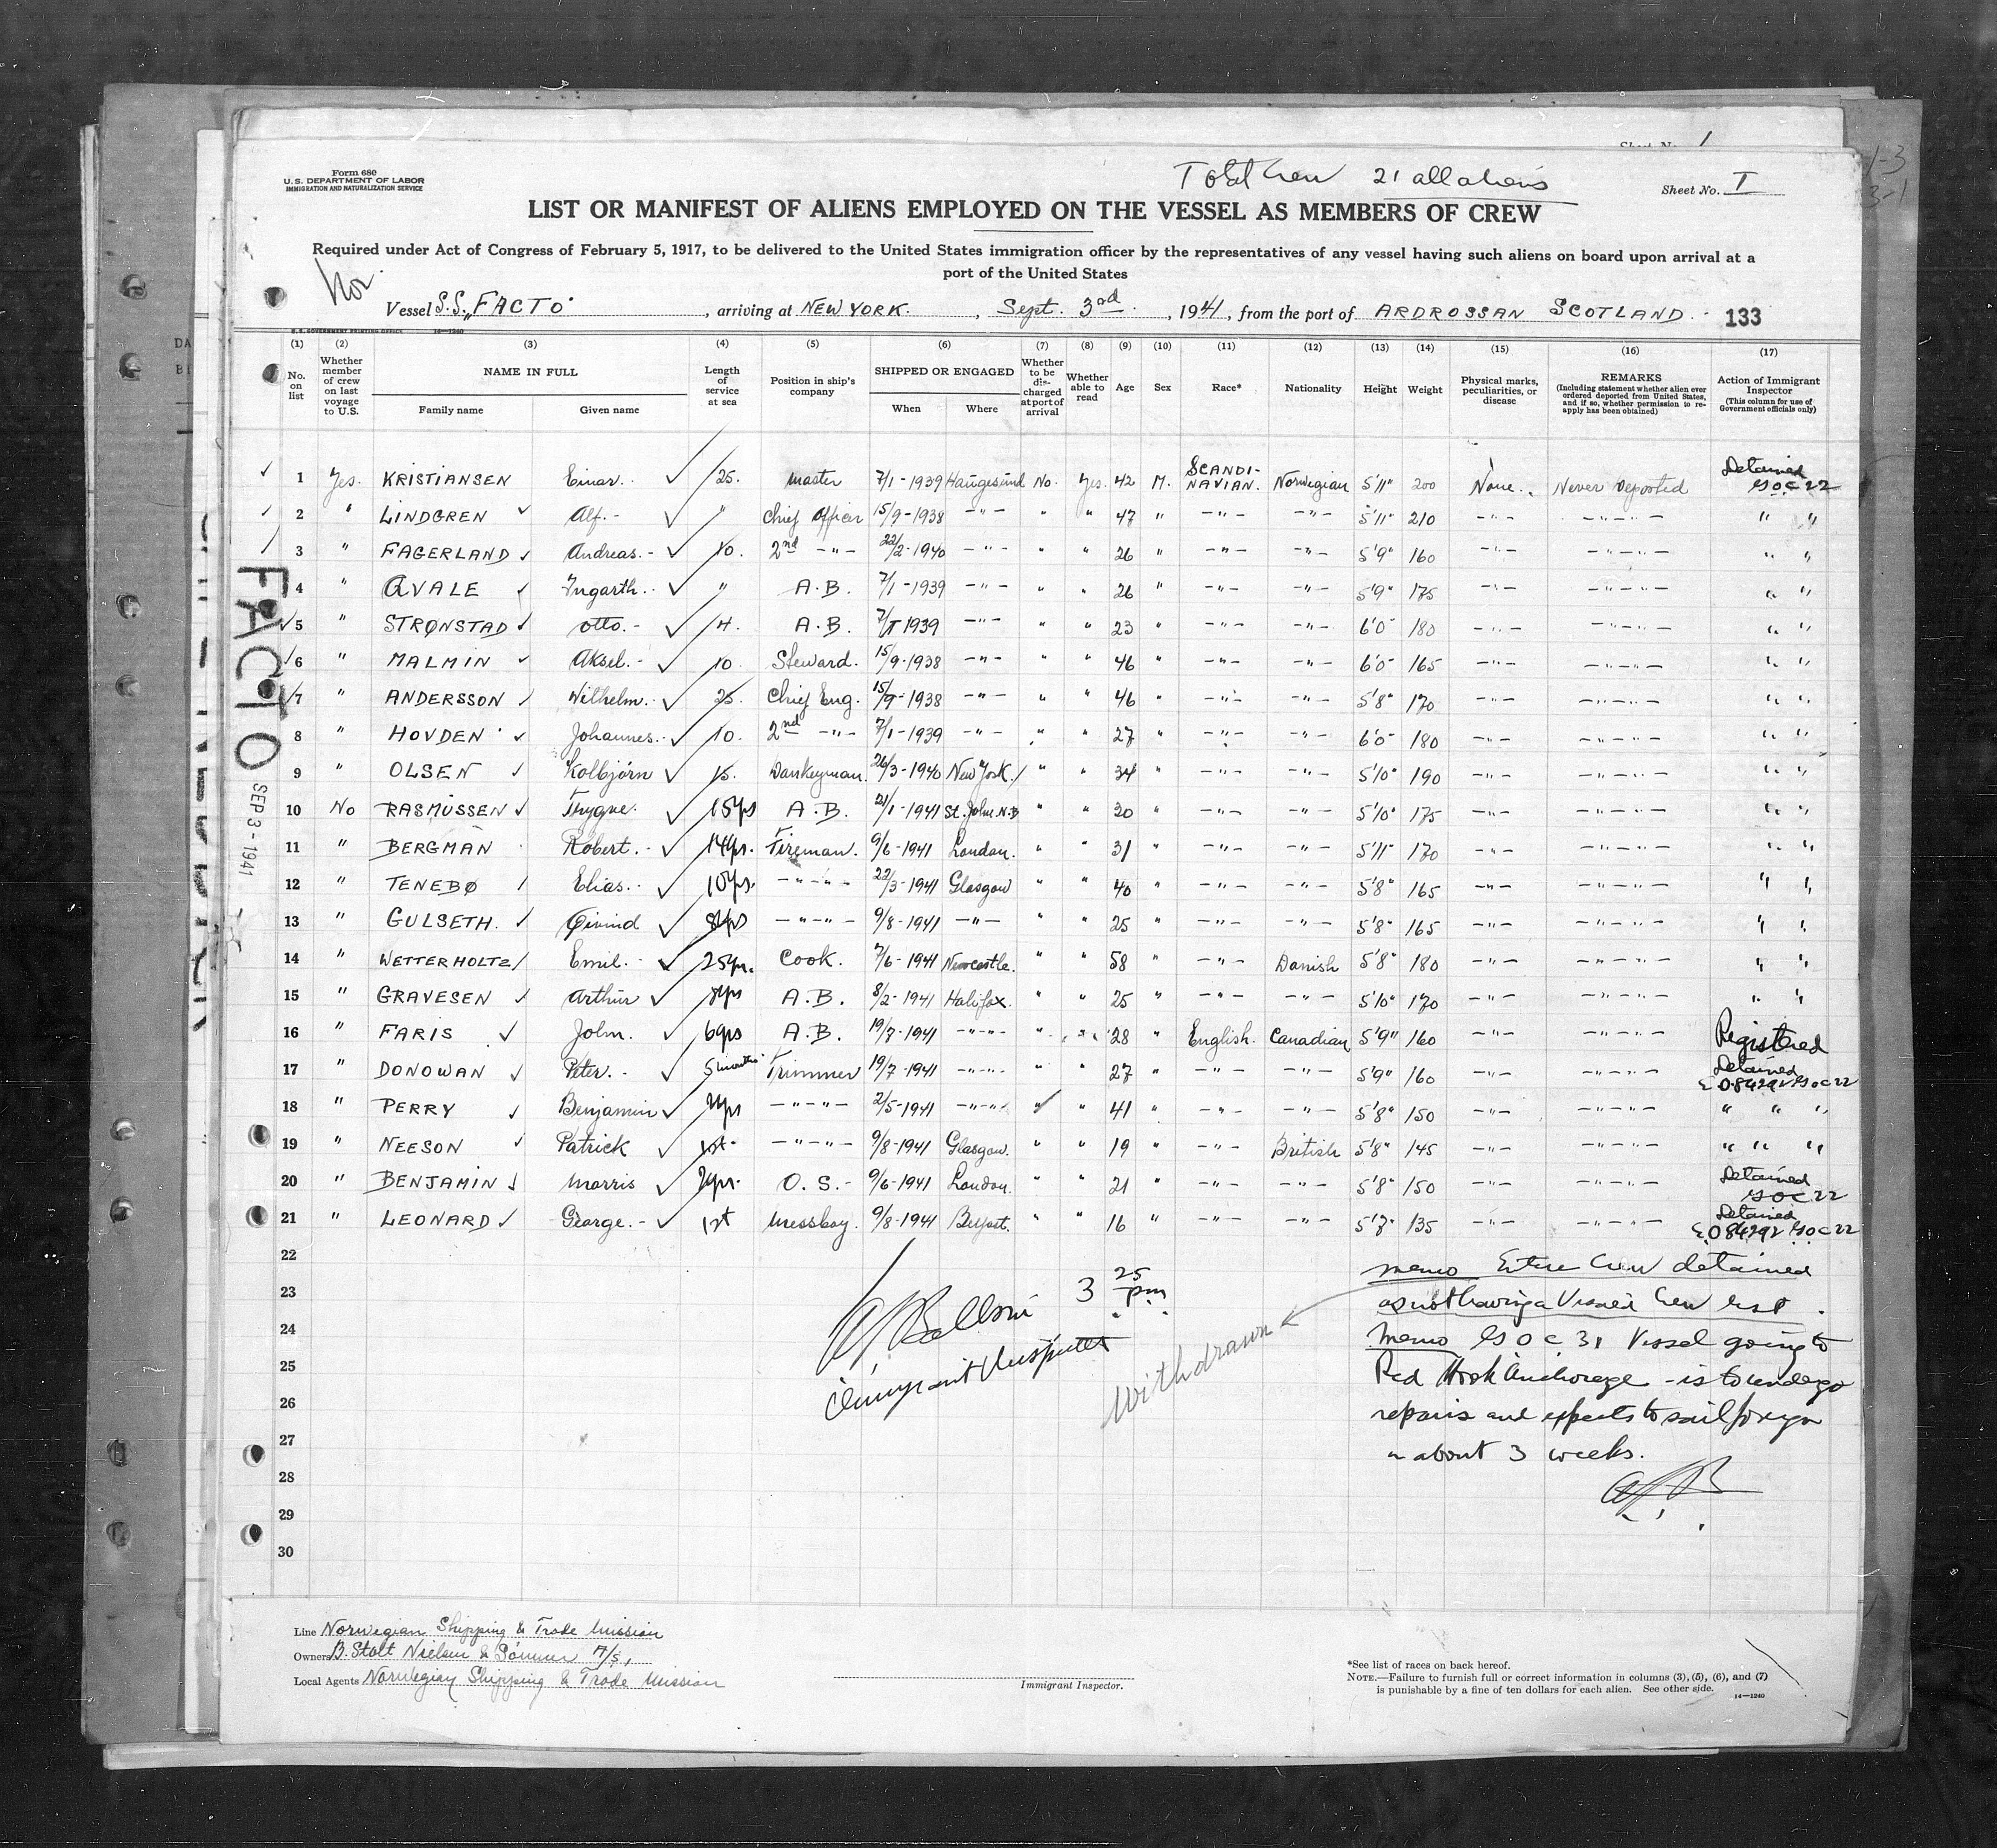 Total Crew 21 all aliens
Form 680
U.S. DEPARTMENT OF LABOR
IMMIGRATION AND NATURALIZATION SERVICE
Sheet No. I
LIST OR MANIFEST OF ALIENS EMPLOYED ON THE VESSEL AS MEMBERS OF CREW
Required under Act of Congress of February 5, 1917, to be delivered to the United States immigration officer by the representatives of any vessel having such aliens on board upon arrival at a
port of the United States
Nor
Vessel S.S. "FACTO" , arriving at NEW YORK. , Sept. 3rd , 1941, from the port of ARDROSSAN SCOTLAND. 133
(1) (2) (3) (4) (5) (6) (7) (8) (9) (10) (11) (12) (13) (14) (15) (16) (17)
No. on list Whether member of crew on last voyage to U.S. NAME IN FULL Family name Given name Length of service at sea Position in ship's company SHIPPED OR ENGAGED When Where Whether to be discharged at port of arrival Whether able to read Age Sex Race* Nationality Height Weight Physical marks, peculiarities, or disease REMARKS (Including statement whether alien ever ordered deported from United States, and if so, whether permission to re-apply has been obtained) Action of Immigrant Inspector (This column for use of Government officials only)
1 Yes. KRISTIANSEN Einar. 25. Master 7/1-1939 Haugesund No. Yes. 42 M. SCANDI-NAVIAN. Norwegian 5'11" 200 None. Never Deported Detained GOC 22
2 " LINDGREN Alf. " Chief Officer 15/9-1938 -"- " " 47 " -"- -"- 5'11" 210 -"- -"-"- " "
3 " FAGERLAND Andreas. 10. 2nd -"- 22/2-1940 -"- " " 26 " -"- -"- 5'9" 160 -"- -"-"- " "
4 " QVALE Ingarth. " A.B. 7/1-1939 -"- " " 26 " -"- -"- 5'9" 175 -"- -"-"- " "
5 " STRØNSTAD Otto. 4. A.B. 7/1 1939 -"- " " 23 " -"- -"- 6'0" 180 -"- -"-"- " "
6 " MALMIN Aksel. 10. Steward. 15/9-1938 -"- " " 46 " -"- -"- 6'0" 165 -"- -"-"- " "
7 " ANDERSSON Wilhelm. 25. Chief Eng. 15/9-1938 -"- " " 46 " -"- -"- 5'8" 170 -"- -"-"- " "
8 " HOVDEN Johannes. 10. 2nd -"- 7/1-1939 -"- " " 27 " -"- -"- 6'0" 180 -"- -"-"- " "
9 " OLSEN Kolbjørn 15. Donkeyman. 26/3-1940 New York. " " 34 " -"- -"- 5'10" 190 -"- -"-"- " "
10 No RASMUSSEN Trygve. 15yrs A.B. 21/1-1941 St. John N.B " " 20 " -"- -"- 5'10" 175 -"- -"-"- " "
11 " BERGMAN Robert. 14yrs. Fireman. 9/6-1941 London. " " 31 " -"- -"- 5'11" 170 -"- -"-"- " "
12 " TENEBØ Elias. 10yrs. -"-"- 22/3-1941 Glasgow " " 40 " -"- -"- 5'8" 165 -"- -"-"- " "
13 " GULSETH. Øivind 8yrs -"-"- 9/8-1941 -"- " " 25 " -"- -"- 5'8" 165 -"- -"-"- " "
14 " WETTERHOLTZ Emil. 25yrs. Cook. 7/6-1941 Newcastle. " " 58 " -"- Danish 5'8" 180 -"- -"-"- " "
15 " GRAVESEN Arthur 8yrs A.B. 8/2-1941 Halifax. " " 25 " -"- -"- 5'10" 170 -"- -"-"- " "
16 " FARIS John. 6yrs A.B. 19/7-1941 -"-"- " " 28 " English. Canadian 5'9" 160 -"- -"-"- Registered
17 " DONOWAN Peter. 5 months Trimmer 19/7-1941 -"-"- " " 27 " -"- -"- 5'9" 160 -"- -"-"- Detained E084292 GOC 22
18 " PERRY Benjamin -"-"- 2/5-1941 -"-"- " " 41 " -"- -"- 5'8" 150 -"- -"-"- " " "
19 " NEESON Patrick 1st -"-"- 9/8-1941 Glasgow. " " 19 " -"- British 5'8" 145 -"- -"-"- " " "
20 " BENJAMIN Morris 2yrs. O.S. 9/6-1941 London. " " 21 " -"- -"- 5'8" 150 -"- -"-"- Detained GOC 22
21 " LEONARD George. 1st Messboy. 9/8-1941 Belfast. " " 16 " -"- -"- 5'7" 135 -"- -"-"- Detained E084292 GOC 22
22
23
24
25
26
27
28
29
30
FACTO
SEP 3 - 1941
3 25 pm
Immigrant Inspector
Withdrawn
Memo Entire Crew detained
as not having a Visaed Crew list.
Memo GOC 31 Vessel going to
Red Hook Anchorage - is to undergo
repairs and expects to sail foreign
in about 3 weeks.
Line Norwegian Shipping & Trade Mission
Owners B. Stolt Nielsen & Sønner A/S,
Local Agents Norwegian Shipping & Trade Mission
Immigrant Inspector.
*See list of races on back hereof.
NOTE.—Failure to furnish full or correct information in columns (3), (5), (6), and (7)
is punishable by a fine of ten dollars for each alien. See other side.
14—1240